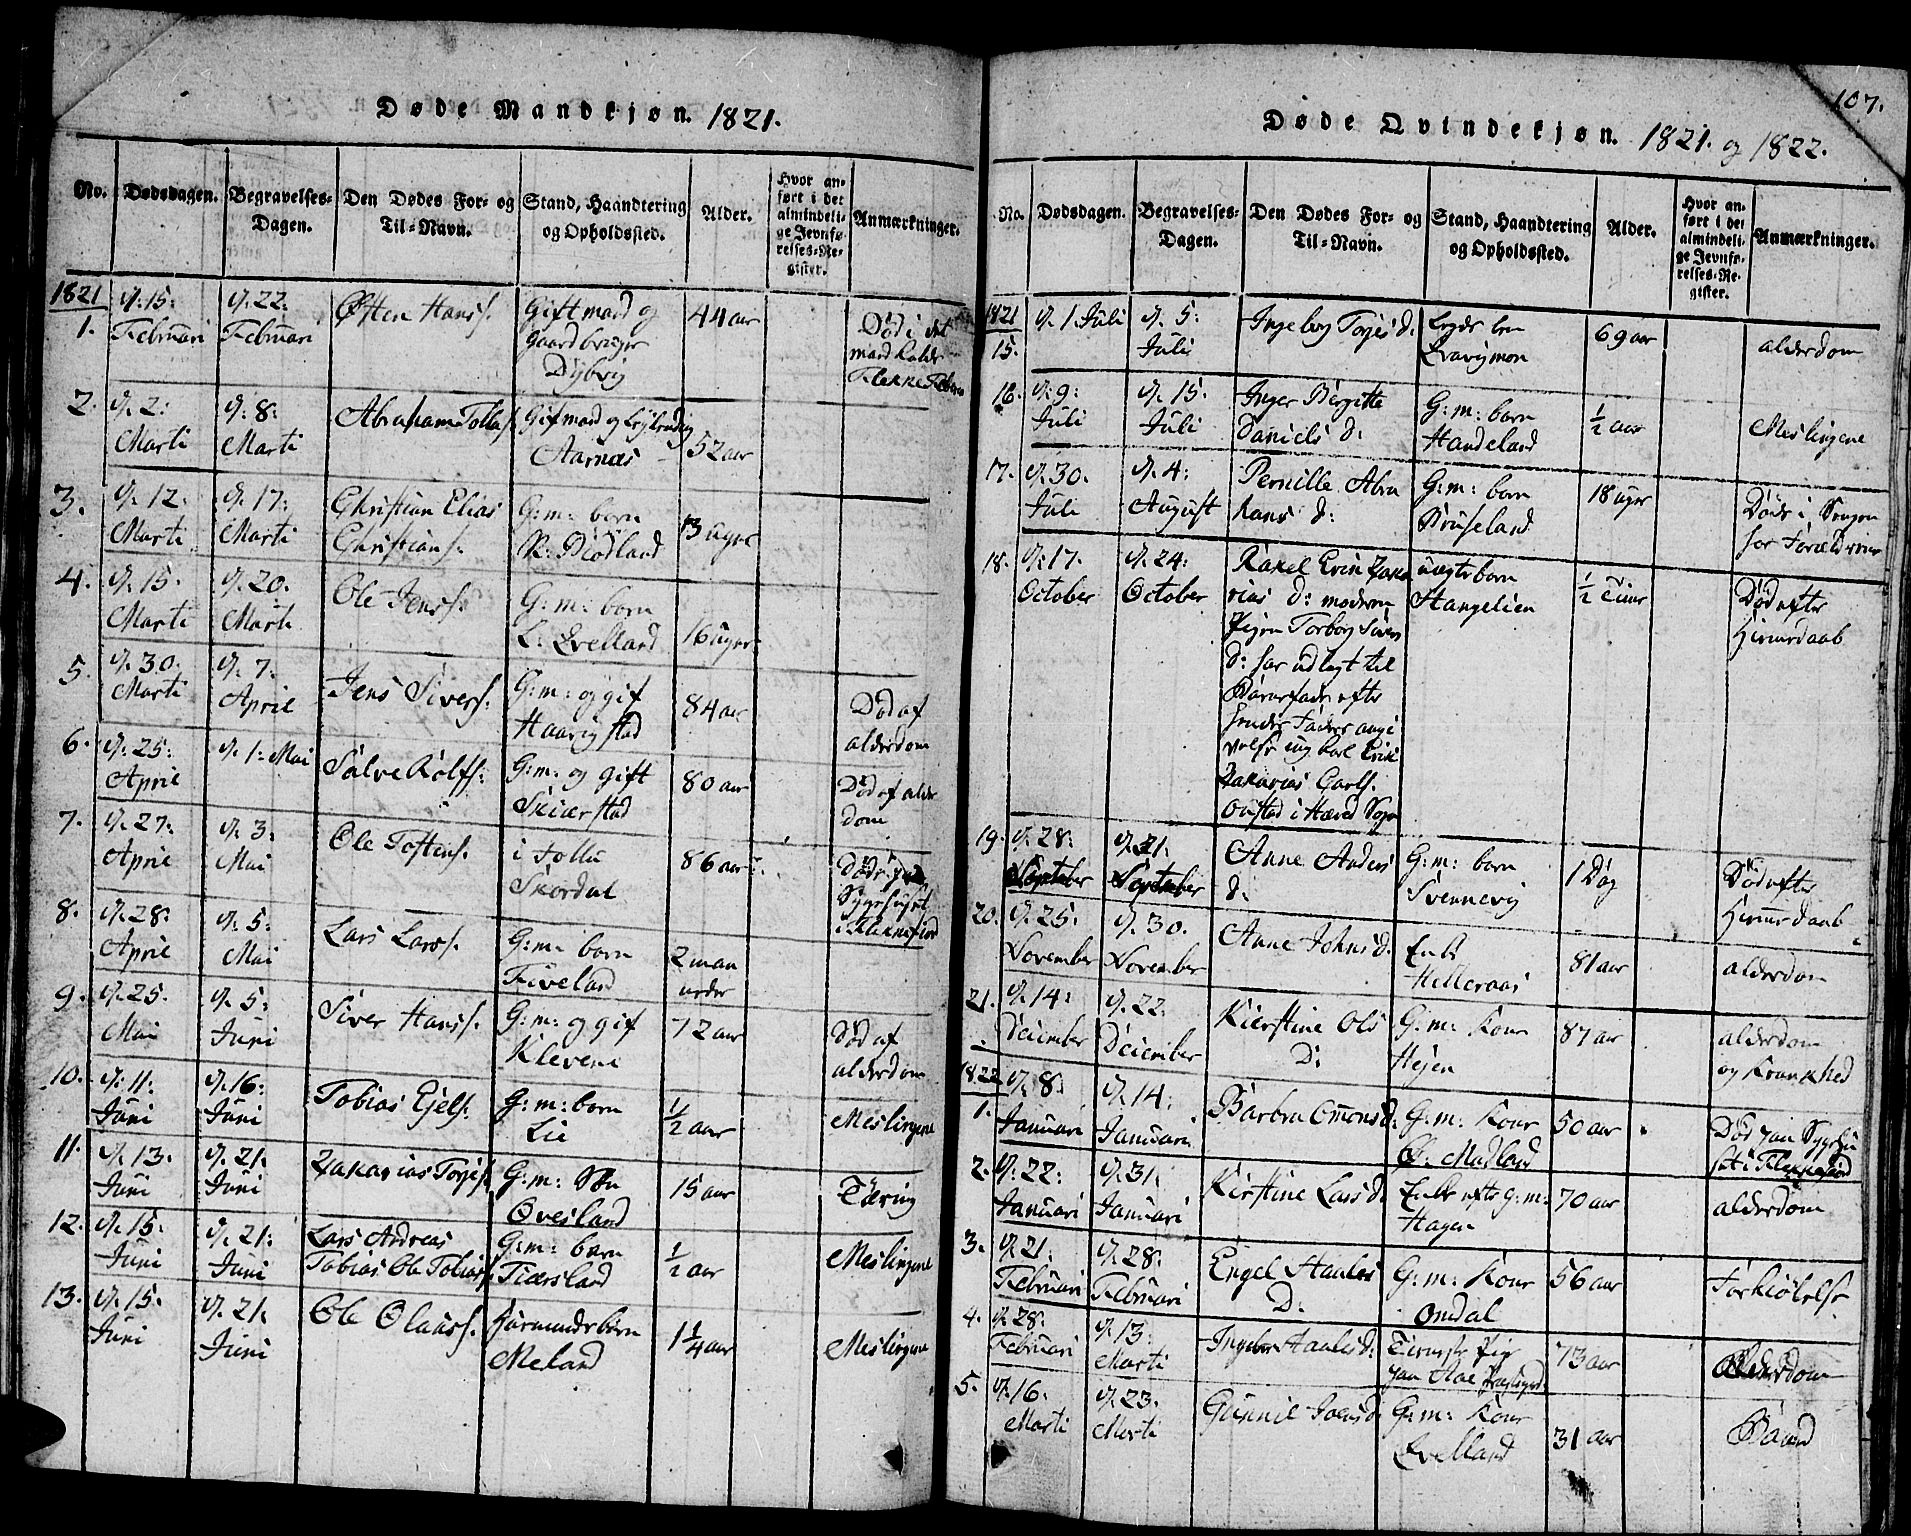 Døde Mandkjøn. 1821.
No. Dødsdagen. Begravelses-Dagen. Den Dødes For- og Til-Navn. Stand, Haandtering og Opholdssted. Alder. Hvor anført i det almindelige Jevnførelses-Register. Anmærkninger.
1821
1. d. 15: Februari d. 22: Februari Østen Hans s. Gift mand og Gaardbruger Dybvig 44 aar Død i
2. d. 2: Marti d. 8: Marti Abraham Tollas s. Gift mand og Aarnæs 52 aar
3. d. 12: Marti d. 17: Marti Christian Elias Christians s. G: m: barn N: Diødland 13 uger
4. d. 15. Marti d. 20. Marti Ole Jens s. G: m: barn L: Evelland 16 uger
5. d. 30. Marti d. 7. April Jens Sivers s. G: m: og gift Haarigstad 84 aar Død af alderdom
6. d. 25: April d. 1: Mai Salve Rolfs s: G: m: og gift Skierstad 80 aar Død af alderdom
7. d. 27: April d. 3: Mai Ole Tostens s. i Follu Skordal 86 aar Døde paa Sygehuset i Flekkefiord
8. d. 28: April d. 5: Mai Lars Lars s. G: m: barn Fiveland 2 maaneder
9. d. 25. Mai d. 5: Juni Siver Hans s. G: m: og gift Klevene 72 aar Død af alderdom
10. d. 11: Juni d. 16: Juni Tobias Ejels s. G: m: barn Lie ½ aar Meslingene
11. d. 13. Juni d. 21. Juni Zakarias Torjes s. G: m: Søn Øvesland 15 aar Tæring
12. d. 15: Juni d. 21: Juni Lars Andreas Tobias Ole Tobias s. G: m: barn Fiærsland ½ aar Meslingene
13. d. 15. Juni d. 21. Juni Ole Olaus s. Huusmands barn Meland 1¼ aar Meslingene
107.
Døde Qvindekjøn. 1821. og 1822.
No. Dødsdagen. Begravelses-Dagen. Den Dødes For- og Til-Navn. Stand, Haandtering og Opholdssted. Alder. Hvor anført i det almindelige Jevnførelses-Register. Anmærkninger.
1821
15. d. 1 Juli d. 5: Juli Ingeborg Torjes d. 69 aar alderdom
16. d. 9: Juli d. 15. Juli Inger Birgitte Daniels d: G: m: barn Handeland ½ aar Meslingene
17. d. 30. Juli d. 4: August Pernille Abrahams d: G: m: barn Bruseland 18 uger Døde i Sengen hos Forældrene
18. d. 17. October d. 24: October Rakel Erik Zakarias d: moderen Pigen Torborg Sivers d: har udlagt til Barnefader efter hendes Faders angivelse ung karl Erik Zakarias Carls s. Onstad i Hæred Sogn uægte barn Stangelien ½ Time Død efter Hiemedaab
19. d. 28: September d. 21: September Anne Anders d. G: m: barn Svennevig 1 Dag Død efter Hiemedaab
20. d. 25: November d. 30. November Anne Johns d. Enke Helleraas 81 aar alderdom
21. d. 14: December d. 22: December Kierstine Ols D: G: m: Kone Hejen 87 aar alderdom og Krankhed
1822
1. d. 8. Januari d. 14: Januari Barbra Omons d: G: m: Kone Ø: Madland 50 aar Død paa Sygehuset i Flekkefiord
2. d. 22: Januari d. 31. Januari Kirstine Lars d. Enke efter G: m: Hagen 70 aar alderdom
3. d. 21. Februari d. 28: Februari Engel Staales D: G: m: Kone Omdal 56 aar Forkiølelse
4. d. 28: Februari d. 13: Marti Ingebor Staales d: Tieneste pige paa Præstegaard 73 aar Alderdom
5. d. 16. Marti d. 23. Marti Gunnil Joens d. G: m: Kone Evelland 31 aar